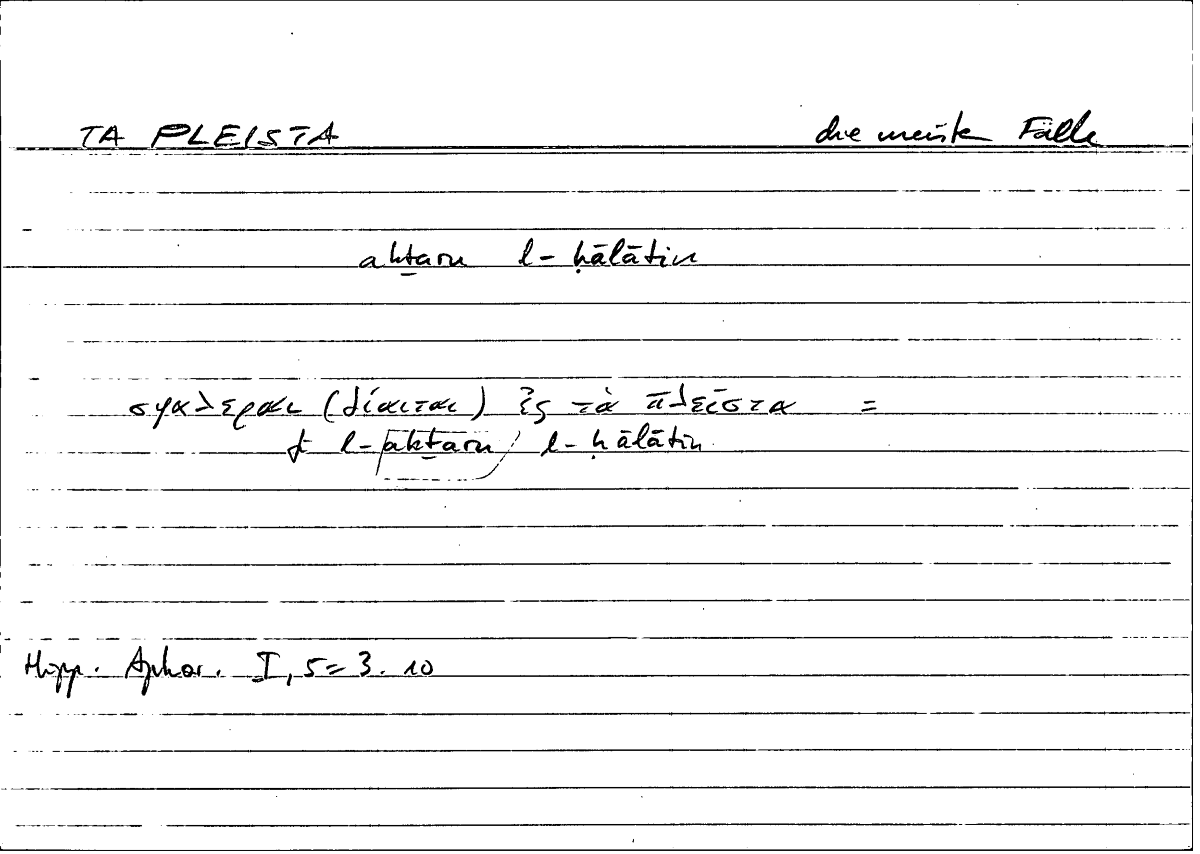 TA PLEISTA die meisten Fälle
akṯaru l-ḥālātin
σφαλεραὶ (δίαιται) ἐς τὰ πλεῖστα =
l-akṯaru l-ḥālātin
Hipp. Aphor. I, 5 = 3. 10